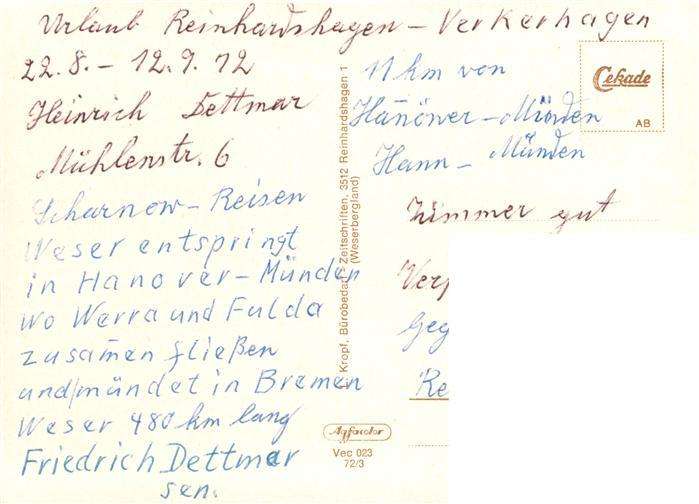 Urlaub Reinhardshagen – Verkerhagen
22.8. – 12.9.72
Heinrich Dettmar
Mühlenstr. 6
Scharnow – Reisen
Weser entspringt
in Hanover – Münden
wo Werra und Fulda
zusamen fließen
und mündet in Bremen
Weser 480 km lang
Friedrich Dettmer
sen.
Kropf, Bürobedarf, Zeitschriften, 3512 Reinhardshagen 1
(Weserbergland)
Agfacolor
Vec 023
72/3
11 km von
Hannover – Münden
Hann – Münden
Cekade
AB
Zimmer gut
Verp
Geg
Re